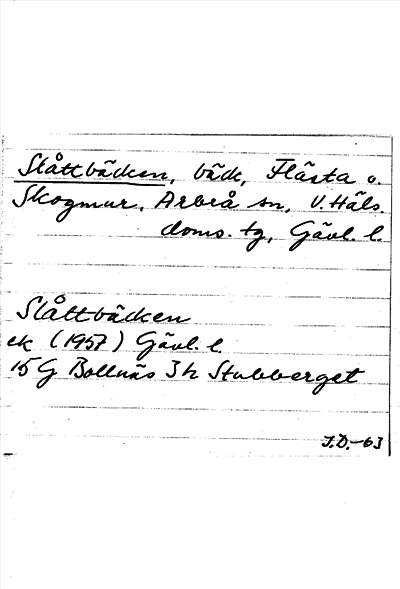 Slåttbäcken, bäck, Flästa o.
Skogmur, Arbrå sn, V. Häls.
doms. tg, Gävl. l.
Slåttbäcken
ek (1957) Gävl. l.
15 G Bollnäs 3 h Stubberget
J.D.-63